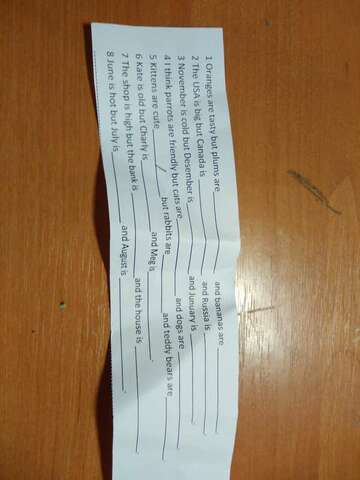 1 Oranges are tasty but plums are __________ and bananas are __________.
2 The USA is big but Canada is __________ and Russia is __________.
3 November is cold but Desember is __________ and Junuary is __________.
4 I think parrots are friendly but cats are __________ and dogs are __________.
5 Kittens are cute __________ but rabbits are __________ and teddy bears are __________
6 Kate is old but Charly is __________ and Meg is __________.
7 The shop is high but the bank is __________ and the house is __________.
8 June is hot but July is __________ and August is __________.